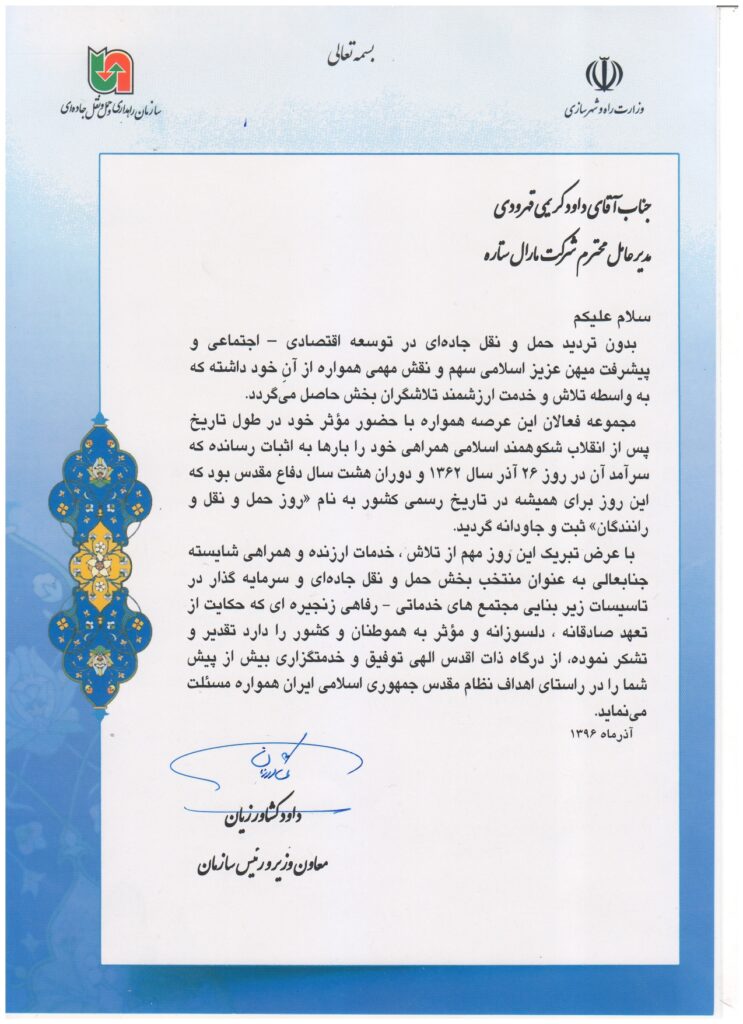 بسمه تعالی
وزارت راه و شهرسازی
سازمان راهداری و حمل و نقل جاده‌ای
جناب آقای داود کریمی قهرودی
مدیرعامل محترم شرکت مارال ستاره
سلام علیکم
بدون تردید حمل و نقل جاده‌ای در توسعه اقتصادی – اجتماعی و
پیشرفت میهن عزیز اسلامی سهم و نقش مهمی همواره از آنِ خود داشته که
به واسطه تلاش و خدمت ارزشمند تلاشگران بخش حاصل می‌گردد.
مجموعه فعالان این عرصه همواره با حضور مؤثر خود در طول تاریخ
پس از انقلاب شکوهمند اسلامی همراهی خود را بارها به اثبات رسانده که
سرآمد آن در روز ۲۶ آذر سال ۱۳۶۲ و دوران هشت سال دفاع مقدس بود که
این روز برای همیشه در تاریخ رسمی کشور به نام «روز حمل و نقل و
رانندگان» ثبت و جاودانه گردید.
با عرض تبریک این روز مهم از تلاش ، خدمات ارزنده و همراهی شایسته
جنابعالی به عنوان منتخب بخش حمل و نقل جاده‌ای و سرمایه گذار در
تاسیسات زیر بنایی مجتمع های خدماتی – رفاهی زنجیره ای که حکایت از
تعهد صادقانه ، دلسوزانه و مؤثر به هموطنان و کشور را دارد تقدیر و
تشکر نموده، از درگاه ذات اقدس الهی توفیق و خدمتگزاری بیش از پیش
شما را در راستای اهداف نظام مقدس جمهوری اسلامی ایران همواره مسئلت
می‌نماید.
آذرماه ۱۳۹۶
داود کشاورزیان
معاون وزیر و رئیس سازمان